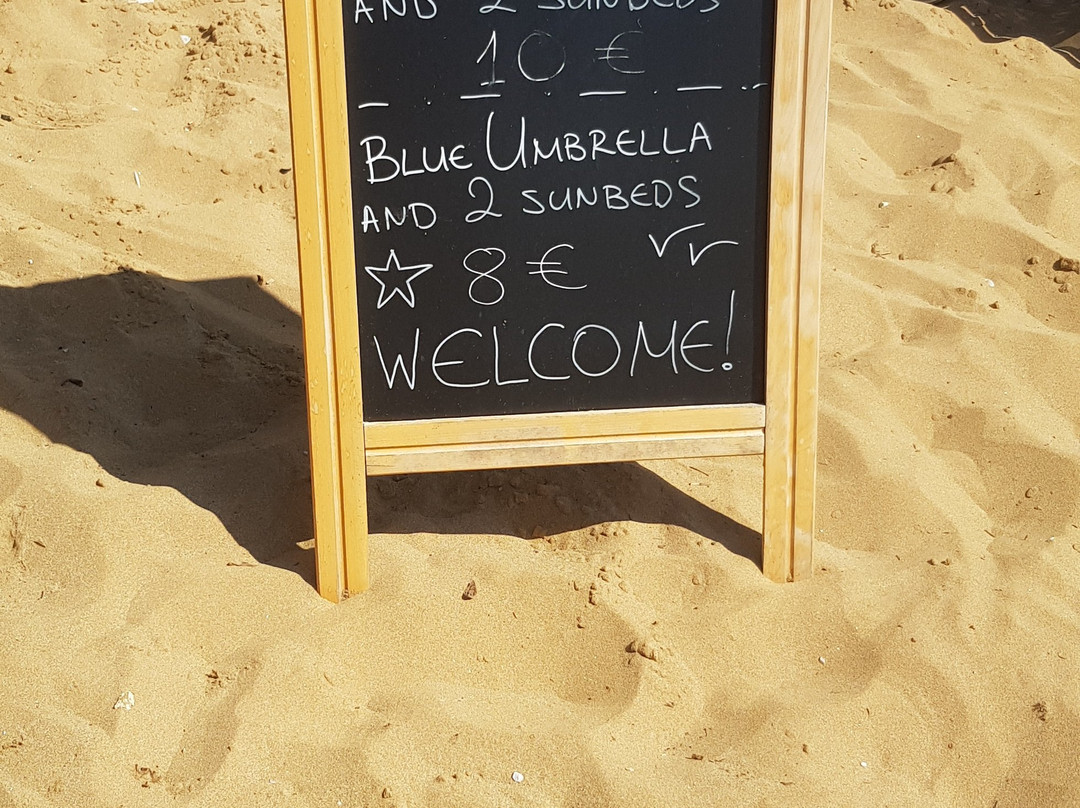 AND 2 SUNBEDS
10 €
BLUE UMBRELLA
AND 2 SUNBEDS
8 €
WELCOME!